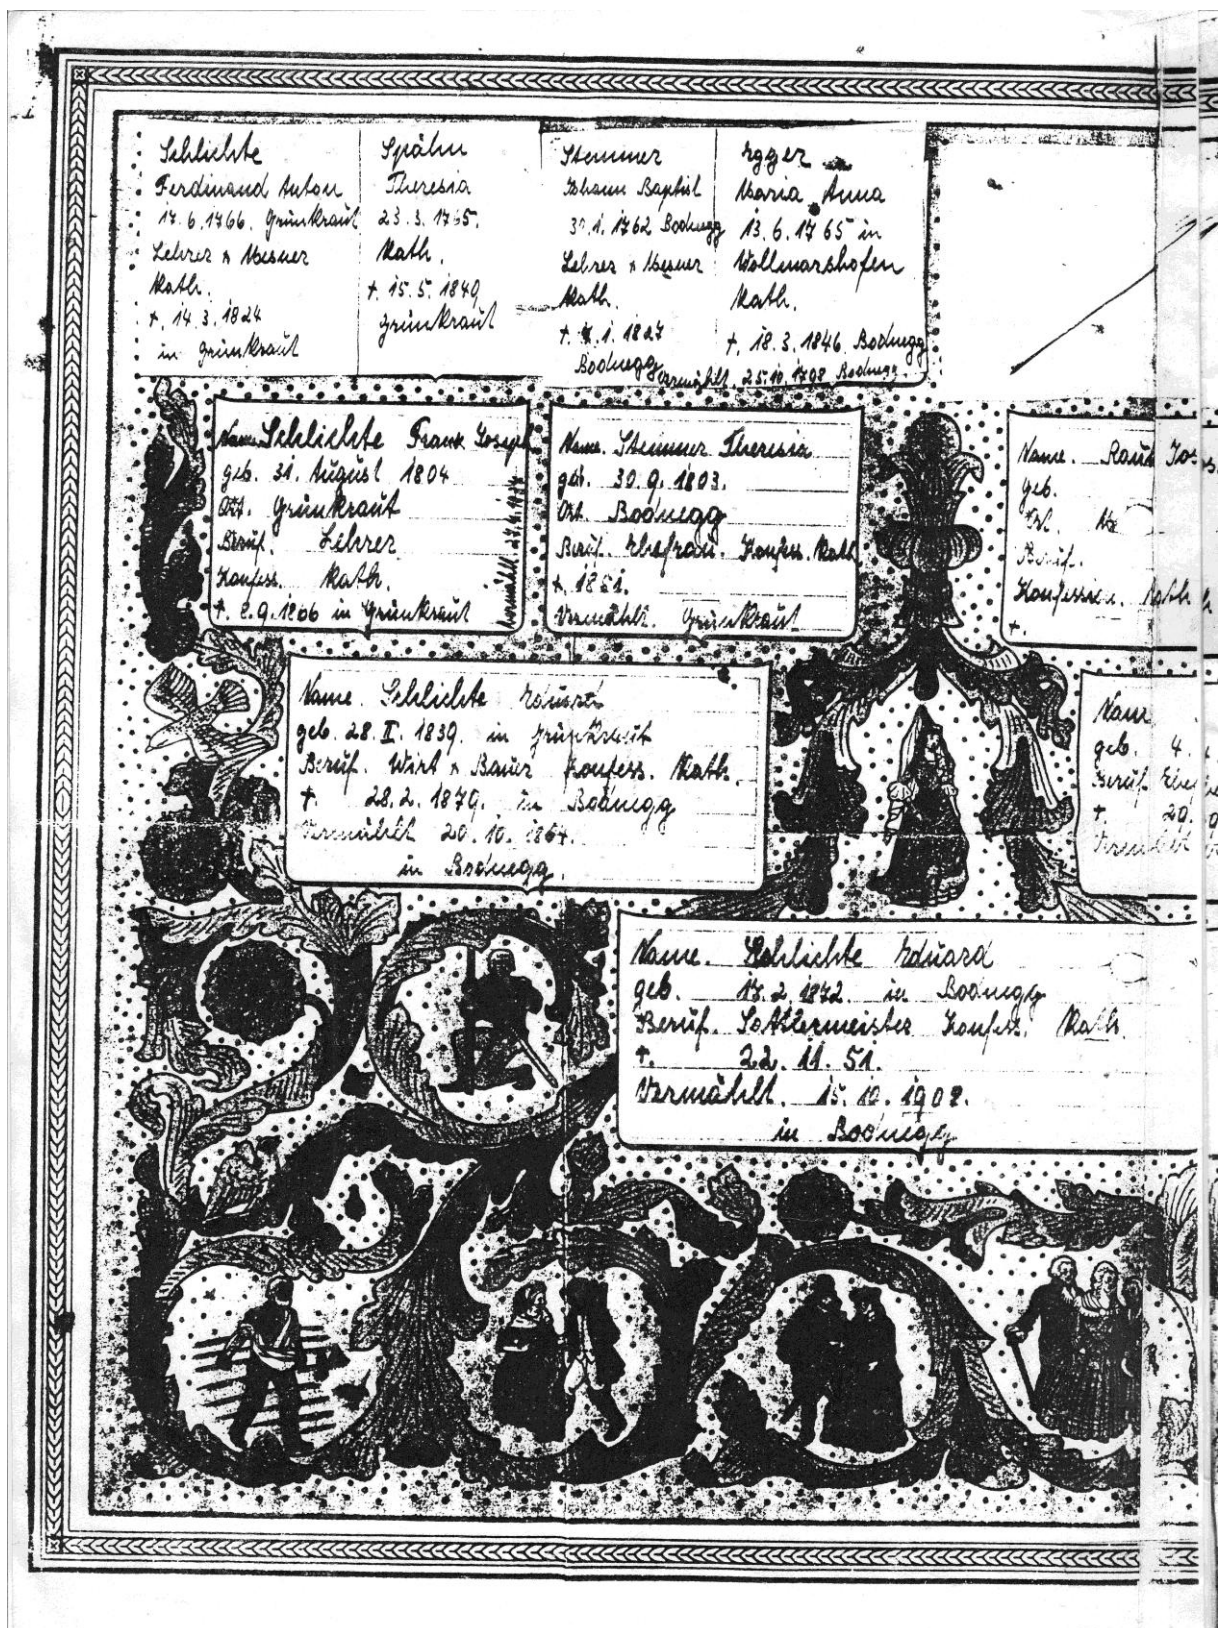 Schlichte
Ferdinand Anton
17.6.1766. Grünkraut
Lehrer & Mesner
Kath.
†. 14.3.1824
in Grünkraut
Spähn
Theresia
23.3.1765.
Kath.
†. 15.5.1849.
Grünkraut
Stemmer
Johann Baptist
30.1.1762 Bodnegg
Lehrer & Mesner
Kath.
†. 1.1827
Bodnegg
Egger
Maria Anna
13.6.1765 in
Wollmarshofen
Kath.
†. 18.3.1846 Bodnegg
Vermählt. 25.10. Bodnegg.
Name. Schlichte Franz Josef
geb. 31. August 1804
Ort. Grünkraut
Beruf. Lehrer
Konfess. Kath.
†. 2.9.1866 in Grünkraut
vermählt
Name. Stemmer Theresia
geb. 30.9.1803.
Ort. Bodnegg
Beruf. Ehefrau. Konfess. Kath.
†. 1851.
Vermählt. Grünkraut
Name. Jos
geb.
Ort.
Beruf.
Konfession. Kath
†.
Name. Schlichte Eduard
geb. 28.II.1839. in Grünkraut
Beruf. Wirt & Bauer Konfess. Kath.
†. 28.2.1879. in Bodnegg
Vermählt 20.10.1864.
in Bodnegg.
Name
geb. 4.
Beruf
†. 20.
Vermählt
Name. Schlichte Eduard
geb. 17.2.1872. in Bodnegg
Beruf. Sattlermeister Konfess. Kath.
†. 22.11.51.
Vermählt. 15.10.1902.
in Bodnegg